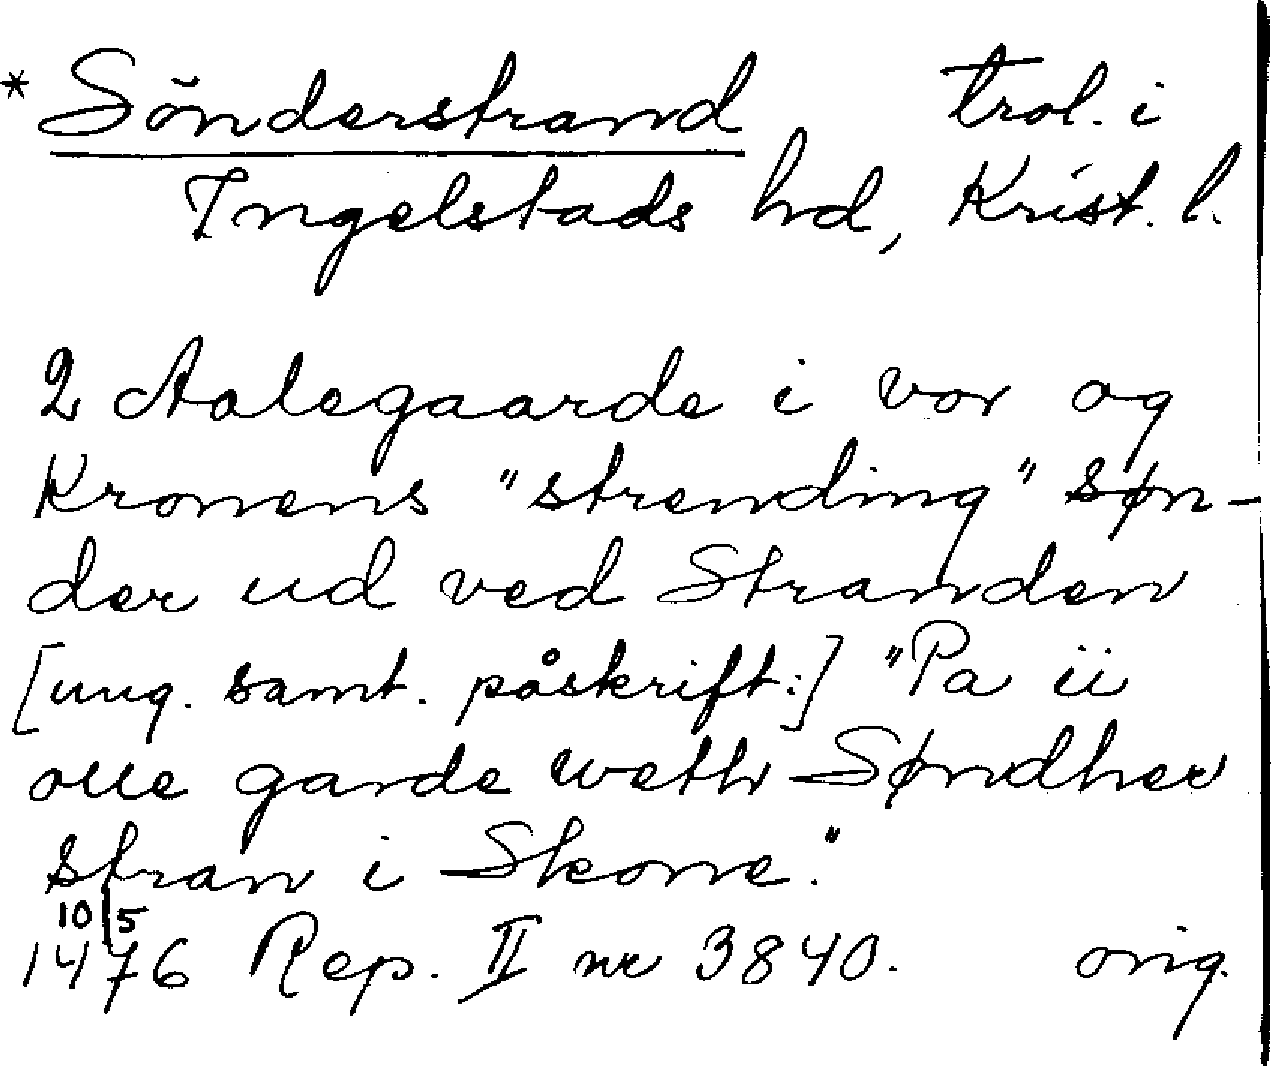 * Sönderstrand trol. i
Ingelstads hd, Krist. l.
2 Aalegaarde i vor og
Kronens "strending" søn-
der ud ved Stranden
[ung. samt. påskrift:] "Pa ii
olle garde weth Søndher
stran i Skone."
10/5
1476 Rep. II nr 3840. orig.